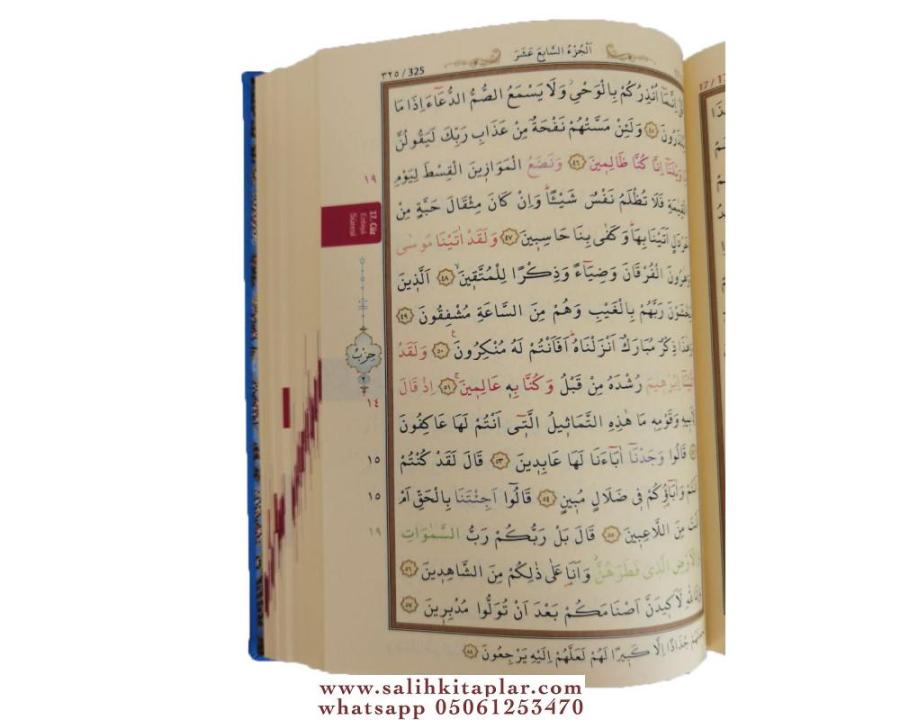 اَلْجُزْءُ السَّابِعَ عَشَرَ
٣٢٥ / 325
اِنَّمَٓا اُنْذِرُكُمْ بِالْوَحْيِ وَلَا يَسْمَعُ الصُّمُّ الدُّعَٓاءَ اِذَا مَا
٤٥ وَلَئِنْ مَسَّتْهُمْ نَفْحَةٌ مِنْ عَذَابِ رَبِّكَ لَيَقُولُنَّ
اِنَّا كُنَّا ظَالِمِينَ ٤٦ وَنَضَعُ الْمَوَازِينَ الْقِسْطَ لِيَوْمِ
فَلَا تُظْلَمُ نَفْسٌ شَيْـًٔا وَاِنْ كَانَ مِثْقَالَ حَبَّةٍ مِنْ
اَتَيْنَا بِهَا وَكَفٰى بِنَا حَاسِبِينَ ٤٧ وَلَقَدْ اٰتَيْنَا مُوسٰى
الْفُرْقَانَ وَضِيَٓاءً وَذِكْرًا لِلْمُتَّقِينَ ٤٨ اَلَّذِينَ
رَبَّهُمْ بِالْغَيْبِ وَهُمْ مِنَ السَّاعَةِ مُشْفِقُونَ ٤٩
ذِكْرٌ مُبَارَكٌ اَنْزَلْنَاهُ اَفَاَنْتُمْ لَهُ مُنْكِرُونَ ٥٠ وَلَقَدْ
اِبْرٰهِيمَ رُشْدَهُ مِنْ قَبْلُ وَكُنَّا بِهِ عَالِمِينَ ٥١ اِذْ قَالَ
لِاَبِيهِ وَقَوْمِهِ مَا هٰذِهِ التَّمَاثِيلُ الَّتِٓي اَنْتُمْ لَهَا عَاكِفُونَ
قَالُوا وَجَدْنَٓا اٰبَٓاءَنَا لَهَا عَابِدِينَ ٥٣ قَالَ لَقَدْ كُنْتُمْ
اَنْتُمْ وَاٰبَٓاؤُ۬كُمْ فِي ضَلَالٍ مُبِينٍ ٥٤ قَالُٓوا اَجِئْتَنَا بِالْحَقِّ اَمْ
اَنْتَ مِنَ اللَّاعِبِينَ ٥٥ قَالَ بَلْ رَبُّكُمْ رَبُّ السَّمٰوَاتِ
وَالْاَرْضِ الَّذِي فَطَرَهُنَّ وَاَنَا۬ عَلٰى ذٰلِكُمْ مِنَ الشَّاهِدِينَ ٥٦
لَاَكِيدَنَّ اَصْنَامَكُمْ بَعْدَ اَنْ تُوَلُّوا مُدْبِرِينَ ٥٧
جُذَاذًا اِلَّا كَبِيرًا لَهُمْ لَعَلَّهُمْ اِلَيْهِ يَرْجِعُونَ ٥٨
١٩
17. Cüz
Enbiyâ
Sûresi
حِزْبُ
٢
١٤
١٥
١٥
١٩
www.salihkitaplar.com
whatsapp 05061253470